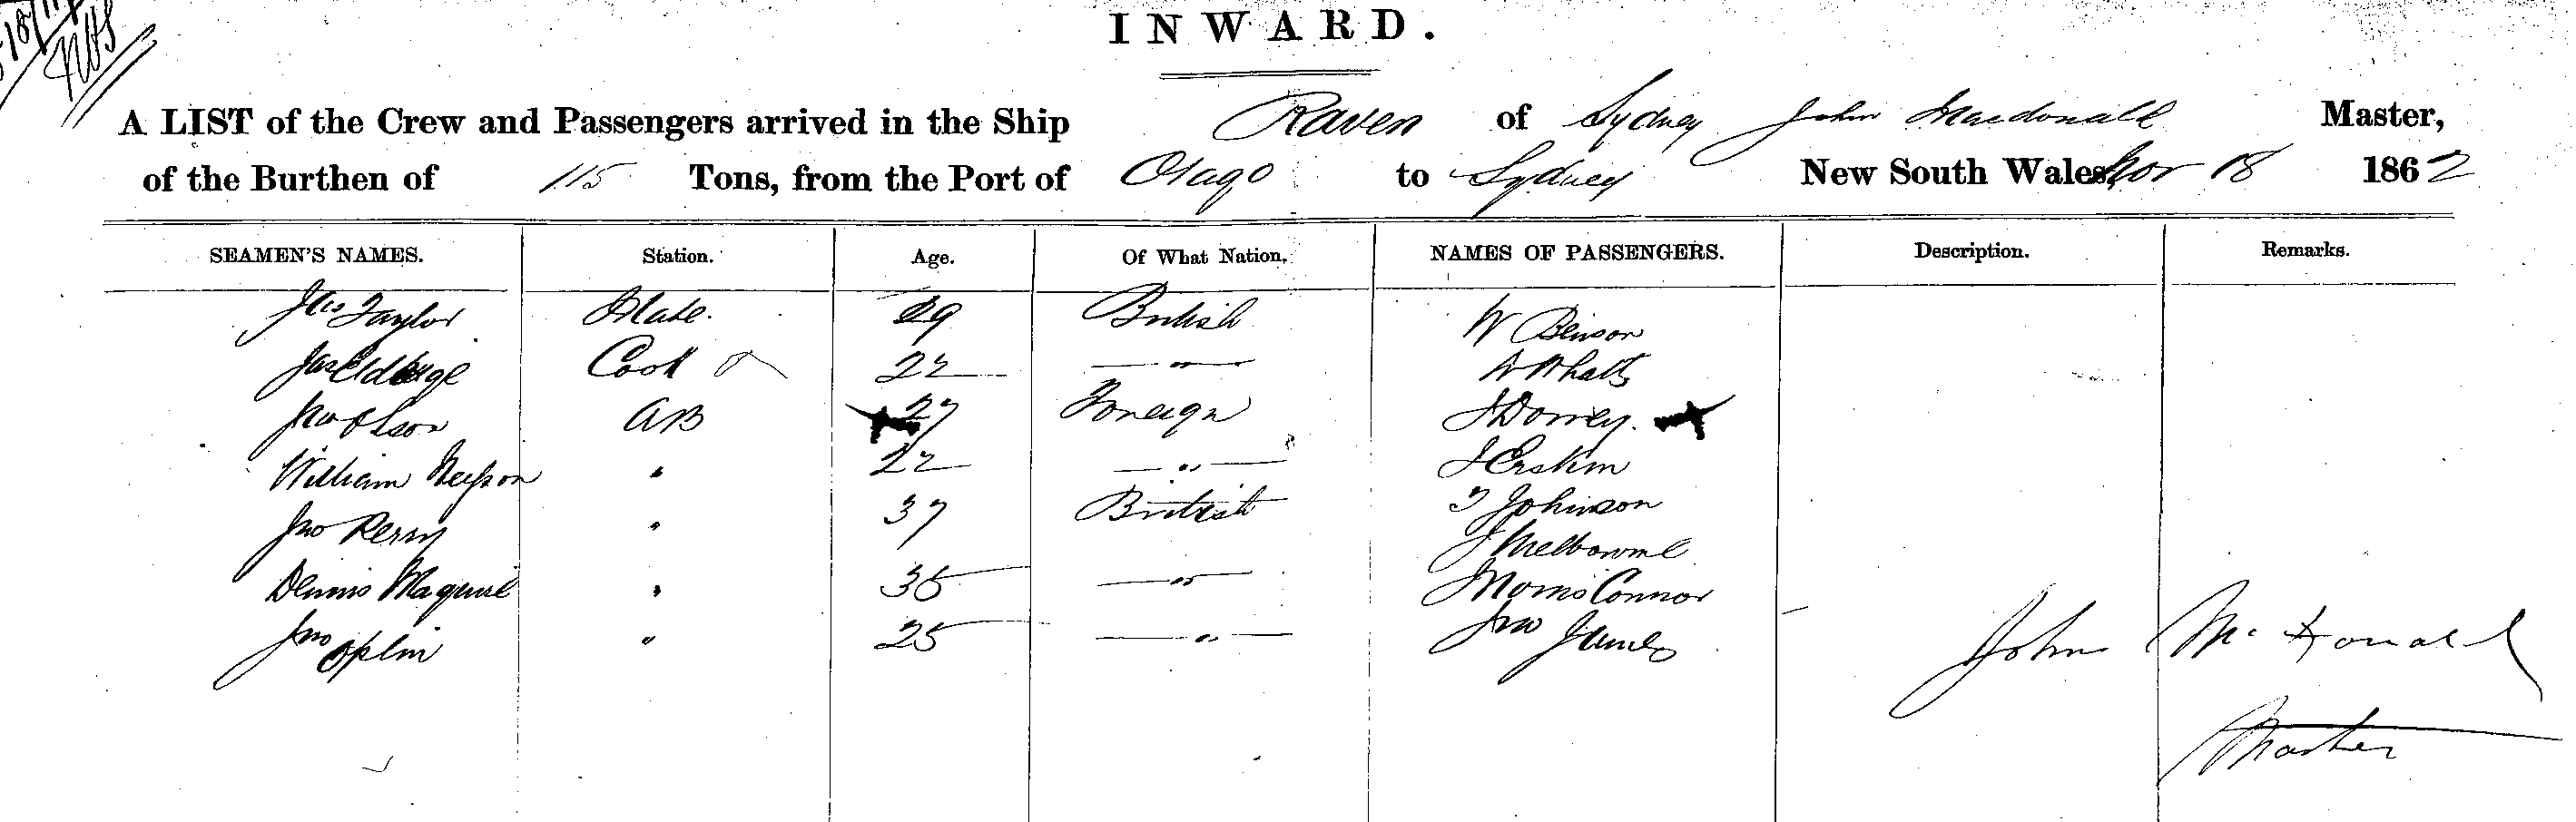 INWARD.
A LIST of the Crew and Passengers arrived in the Ship Raven of Sydney John Macdonald Master,
of the Burthen of 115 Tons, from the Port of Otago to Sydney New South Wales Nov 18 1862
SEAMEN'S NAMES. Station. Age. Of What Nation. NAMES OF PASSENGERS. Description. Remarks.
Taylor Mate. 29 British W Benson
Jas Cook 22 — " — W Whatts
Jno Olson AB 27 Foreign J Dorrey.
William " 22 — " — J Erskin
Jno Perry " 37 British T Johnson
Dennis Maguire " 35 — " — J Melbourne
Jno Oplin " 25 — " — Morris Connor
Jno James
John McDonald
Master